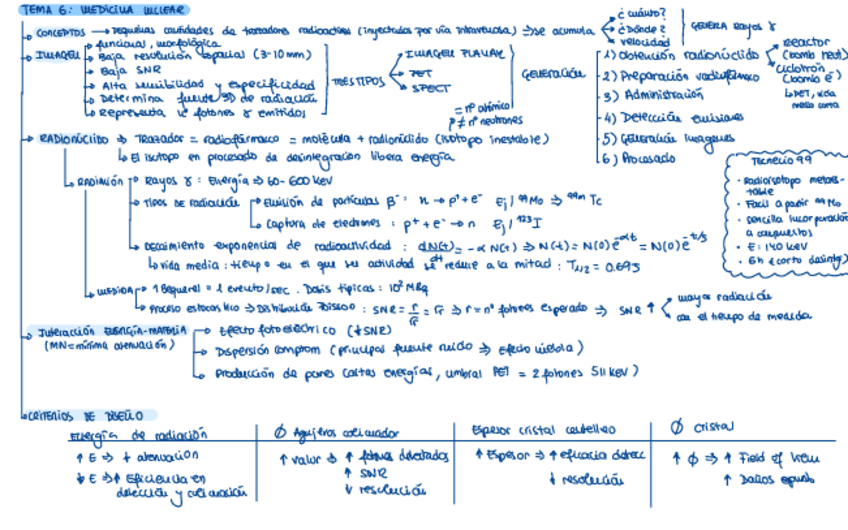 TEMA 6: MEDICINA NUCLEAR
CONCEPTOS → pequeñas cantidades de trazadores radioactivos (inyectados por vía intravenosa) ⇒ se acumula
¿cuánto?
¿dónde?
velocidad
GENERA Rayos γ
IMAGEN
funcional, morfológica
Baja resolución espacial (3-10mm)
Baja SNR
Alta sensibilidad y especificidad
Determina fuente 3D de radiación
Representa nº fotones γ emitidos
TRES TIPOS
IMAGEN PLANAR
PET
SPECT
Generación
1) Obtención radionúclido
Reactor
(bomb neut)
Ciclotrón
(bomb e⁻)
↳ PET, vida
media corta
2) Preparación radiofármaco
3) Administración
4) Detección emisiones
5) Generación Imagenes
6) Procesado
= nº atómico
≠ nº neutrones
RADIONÚCLIDO ⇒ Trazador = radiofármaco = molécula + radionúclido (isótopo inestable)
↳ El isotopo en procesado de desintegración libera energía
RADIACIÓN
Rayos γ : Energía ⇒ 60-600 keV
Tipos de radiación
Emisión de partículas β⁻: n → p⁺+e⁻ Ej/ ⁹⁹Mo ⇒ ⁹⁹ᵐTc
Captura de electrones : p⁺+e⁻→ n Ej/ ¹²³I
Decaimiento exponencial de radioactividad : dN(t)/dt = -α N(t) ⇒ N(t) = N(0)e^-αt = N(0)e^-t/τ
↳ vida media : tiempo en el que su actividad se reduce a la mitad : T1/2 = 0.693
Tecnecio 99
· Radioisotopo metaes-
table
· Facil a partir ⁹⁹Mo
· sencilla incorporación
a compuestos
· E: 140 keV
· 6h (corto desinteg)
MEDIDA
1 Bequerel = 1 evento/sec. Dosis típicas : 10² MBq
Proceso estocastico ⇒ Distribución Poisson : SNR = r/√r = √r ⇒ r = nº fotones esperado ⇒ SNR ↑
mayor radiación
con el tiempo de medida
Interacción ENERGÍA-MATERIA
(MN = mínima atenuación)
Efecto fotoeléctrico (↓SNR)
Dispersión compton (principal fuente ruido ⇒ Efecto niebla)
Producción de pares (altas energías, umbral PET = 2 fotones 511 keV)
CRITERIOS DE DISEÑO
Energía de radiación
↑ E ⇒ ↓ atenuación
↓ E ⇒ ↑ Eficiencia en
detección y colimación
Ø Agujeros colimador
↑ valor ⇒ ↑ fotones detectados
↑ SNR
↓ resolución
Espesor cristal centelleo
↑ Espesor ⇒ ↑ eficacia detec
↓ resolución
Ø cristal
↑ Ø ⇒ ↑ Field of View
↑ Daños